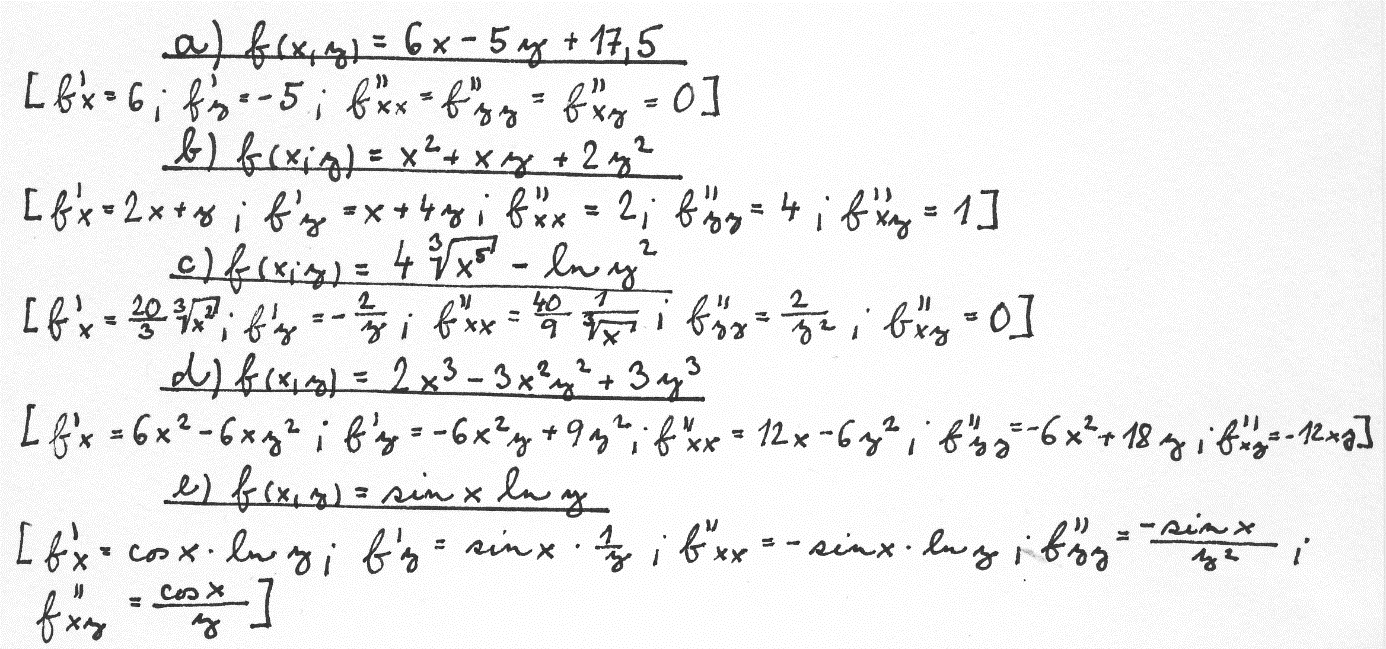 a) f(x,y) = 6x - 5y + 17,5
[f'x = 6; f'y = -5; f''xx = f''yy = f''xy = 0]
b) f(x;y) = x² + xy + 2y²
[f'x = 2x + y; f'y = x + 4y; f''xx = 2; f''yy = 4; f''xy = 1]
c) f(x;y) = 4 ∛(x⁵) - ln y²
[f'x = 20/3 ∛(x²); f'y = -2/y; f''xx = 40/9 1/∛x; f''yy = 2/y²; f''xy = 0]
d) f(x,y) = 2x³ - 3x²y² + 3y³
[f'x = 6x² - 6xy²; f'y = -6x²y + 9y²; f''xx = 12x - 6y²; f''yy = -6x² + 18y; f''xy = -12xy]
e) f(x,y) = sin x ln y
[f'x = cos x · ln y; f'y = sin x · 1/y; f''xx = - sin x · ln y; f''yy = -sin x/y²;
f''xy = cos x/y]